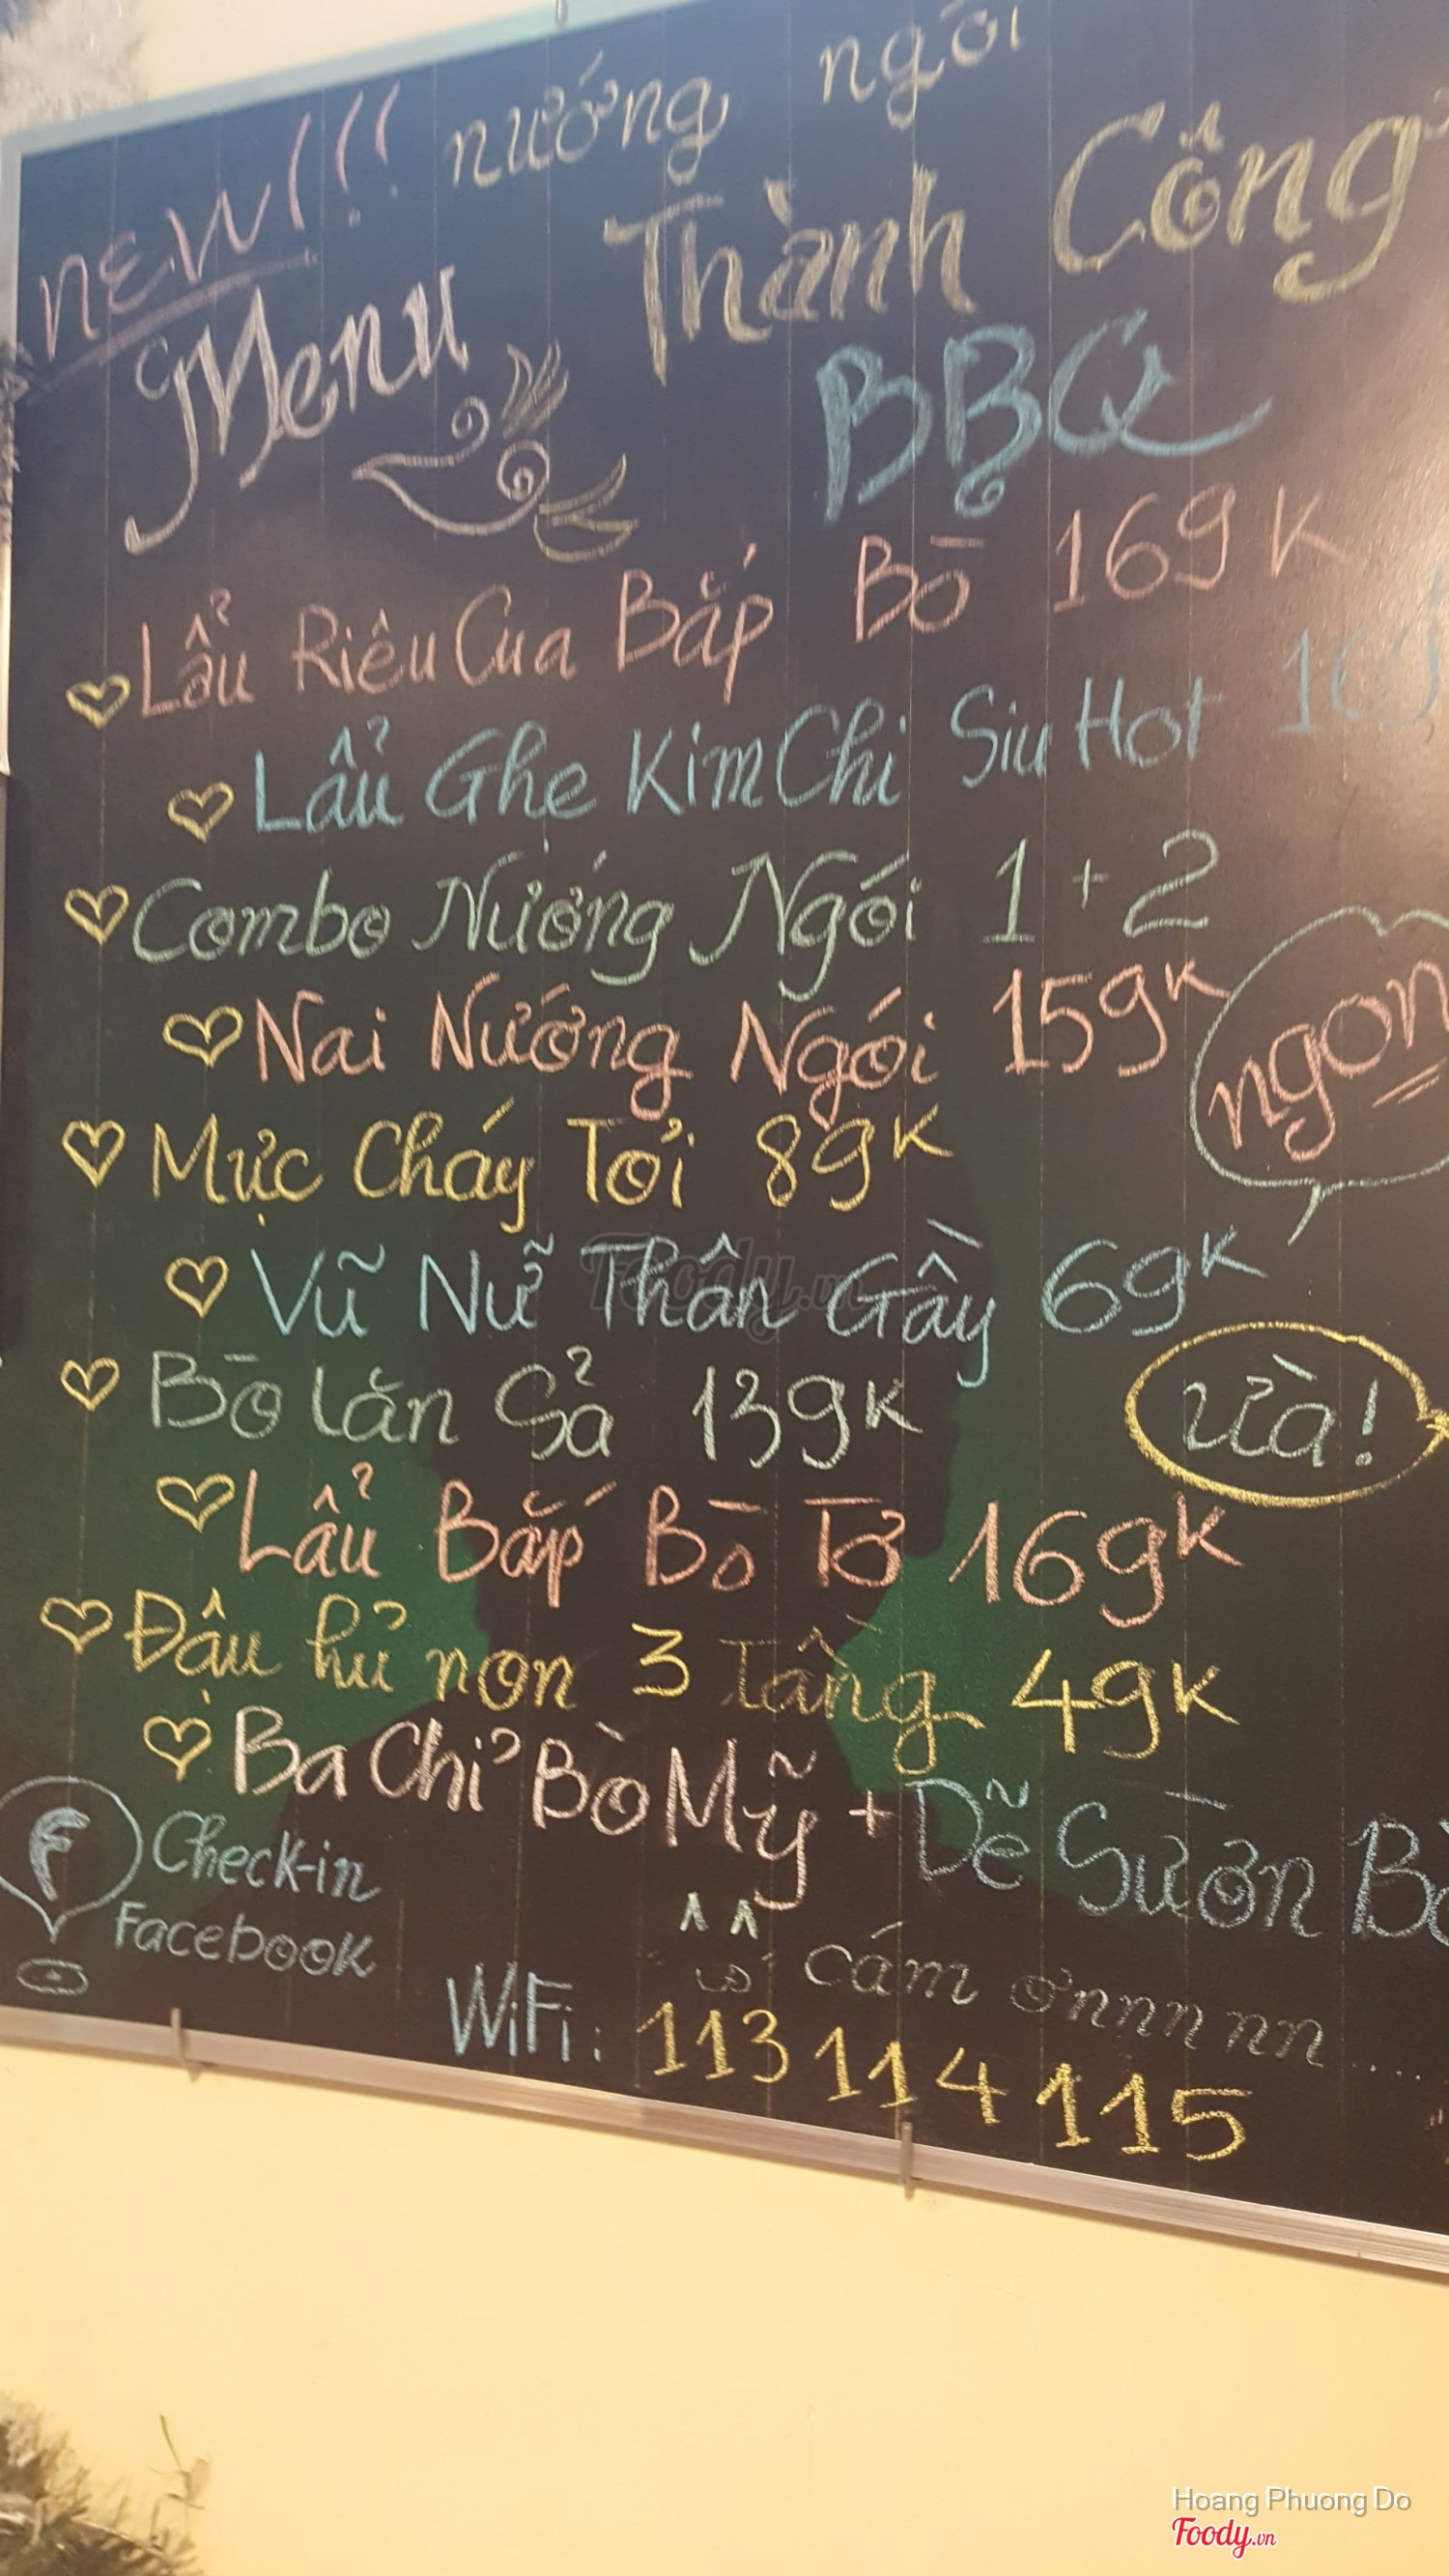 new!!! nướng ngói
Menu Thành Công
BBQ
Lẩu Riêu Cua Bắp Bò 169K
Lẩu Ghẹ Kim Chi Siu Hot
Combo Nướng Ngói 1+2
Nai Nướng Ngói 159K
ngon
Mực Cháy Tỏi 89K
Vũ Nữ Thân Gầy 69K
Bò Lăn Sả 139K
ưà!
Lẩu Bắp Bò Tơ 169K
Đậu hủ non 3 tầng 49K
Ba Chỉ Bò Mỹ + Dẽ Sườn
Check-in
Facebook
cám ơnnnnn....
WiFi: 113114115
Foody.vn
Hoang Phuong Do
Foody.vn